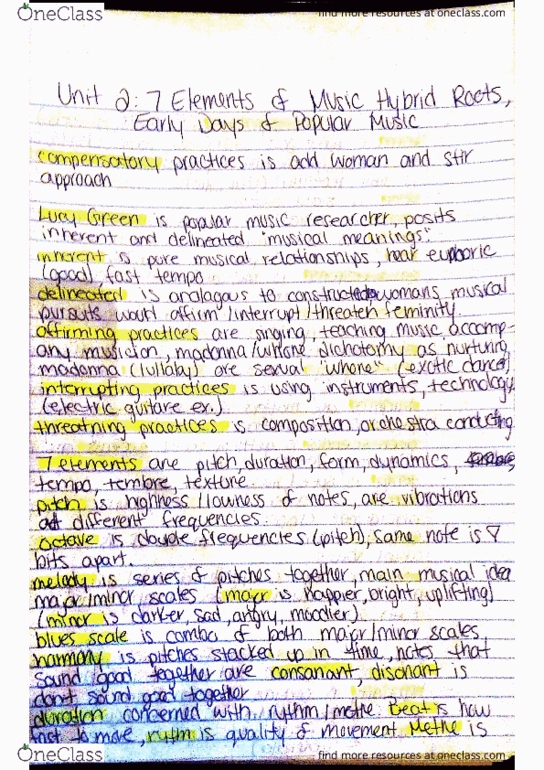 OneClass
find more resources at oneclass.com
Unit 2: 7 Elements of Music Hybrid Roots,
Early Days of Popular Music
compensatory practices is add woman and stir
approach
Lucy Green is popular music researcher, posits
inherent and delineated "musical meanings".
inherent is pure musical relationships, hear euphoric
(good) fast tempo
delineated is analagous to constructed womans musical
pursuits would affirm /interrupt/threaten feminity.
affirming practices are singing, teaching music accomp-
any musicion, madonna/whore dichotomy as nurturing
madonna (lullaby) are sexual "whore" (exotic dance)
interrupting practices is using instruments, technology
(electric guitare ex.)
threatning practices is composition, orchestra conducting
7 elements are pitch, duration, form, dynamics,
tempo, tembre, texture.
pitch is highness /lowness of notes, are vibrations
at different frequencies.
octave is double frequencies (pitch), same note is 8
bits apart.
melody is series of pitches together, main musical idea
major/minor, scales (major is happier, bright, uplifting)
(minor is darker, sad, angry, moodier).
blues scale is combo of both major/minor scales
harmony is pitches stacked up in time, notes that
sound good together are consanant, disonant is
don't sound good together
duration concerned with rythm/metre. beat is how
fast to move, rythm is quality of movement Metre is
OneClass
find more resources at oneclass.com